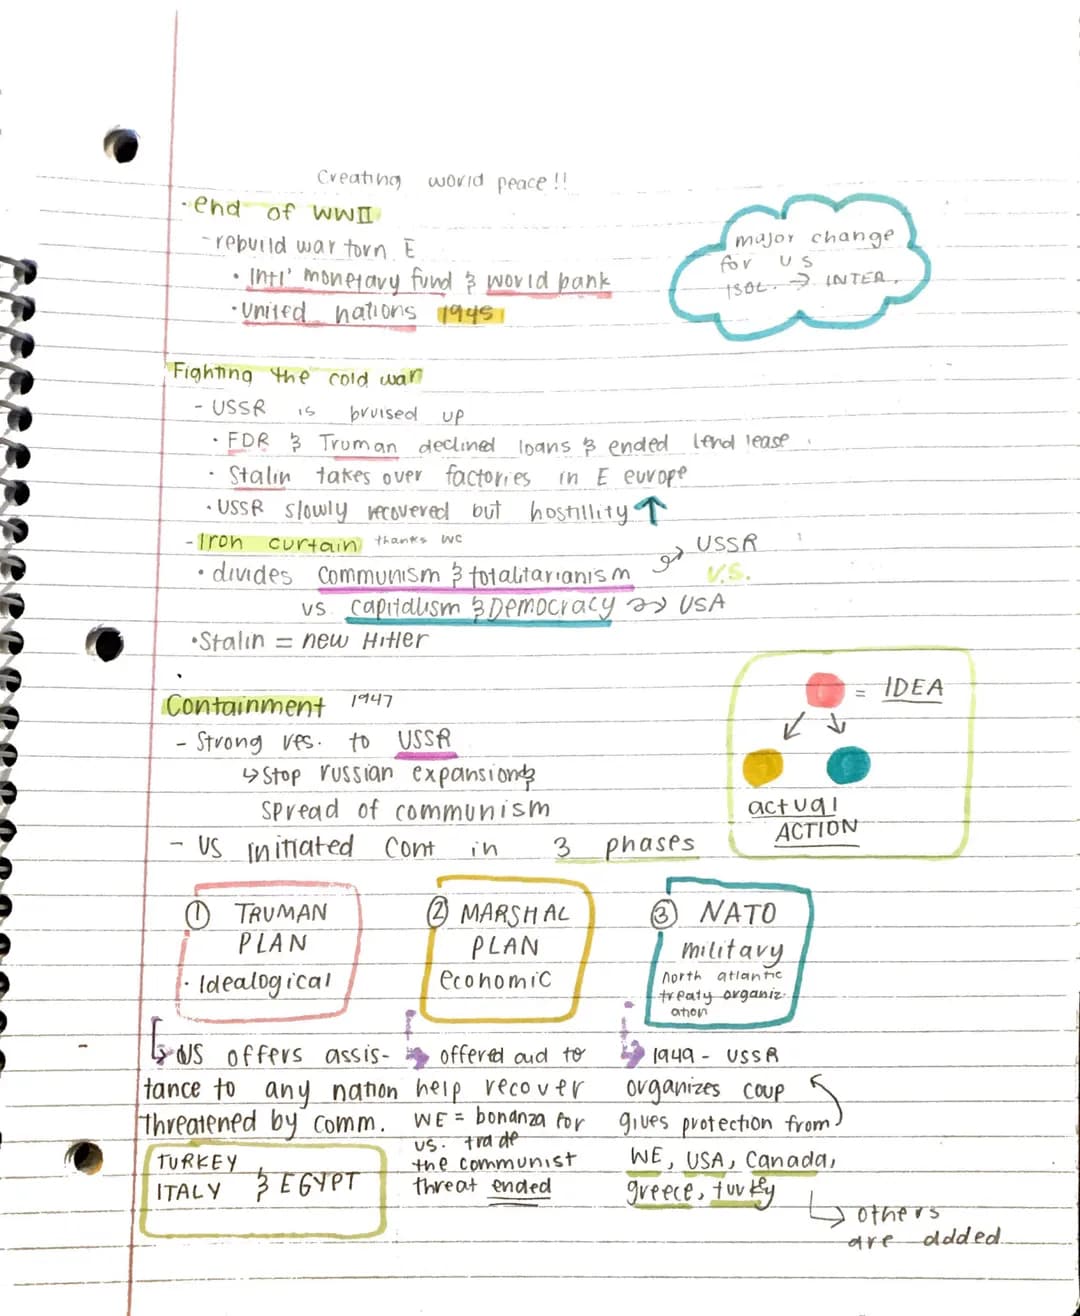 Creating world peace!!
·end of WWII
-rebuild war torn E
· Intl' monetary fund & world bank
·United nations 1945
major change
for US
ISOL. → INTER.
Fighting the cold war
- USSR is bruised up
· FDR & Truman declined loans & ended lend lease.
· Stalin takes over factories in E europe
· USSR slowly recovered but hostillity ↑
-Iron curtain thanks WC
· divides communism & totalitarianism → USSR
V.S.
vs. capitalism & Democracy →> USA
·Stalin = new Hitler
·
Containment 1947
- Strong res. to USSR
↳ Stop russian expansion &
spread of communism
- US initiated cont in 3 phases
= IDEA
actual
ACTION
① TRUMAN
PLAN
· Idealogical
② MARSHAL
PLAN
economic
③ NATO
military
north atlantic
treaty organiz
ation
↳ US offers assis-
tance to any nation
threatened by comm.
TURKEY
ITALY & EGYPT
offered aid to
help recover
WE = bonanza for
US. trade
the communist
threat ended
1949 - USSR
organizes coup
gives protection from
WE, USA, Canada,
greece, turkey
↳ others
are added